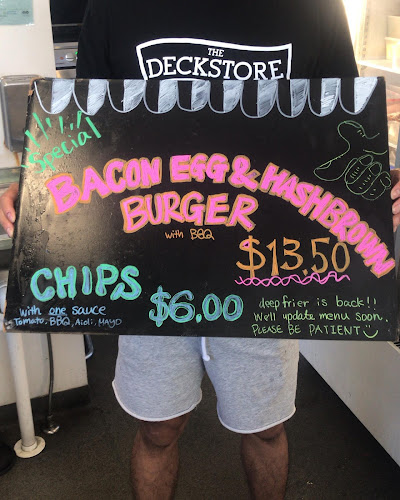 THE
DECKSTORE
Special
BACON EGG & HASHBROWN
BURGER
with BBQ
$13.50
CHIPS
with one sauce
Tomato, BBQ, Aioli, MAYO
$6.00
deep frier is back!!
We'll update menu soon.
PLEASE BE PATIENT